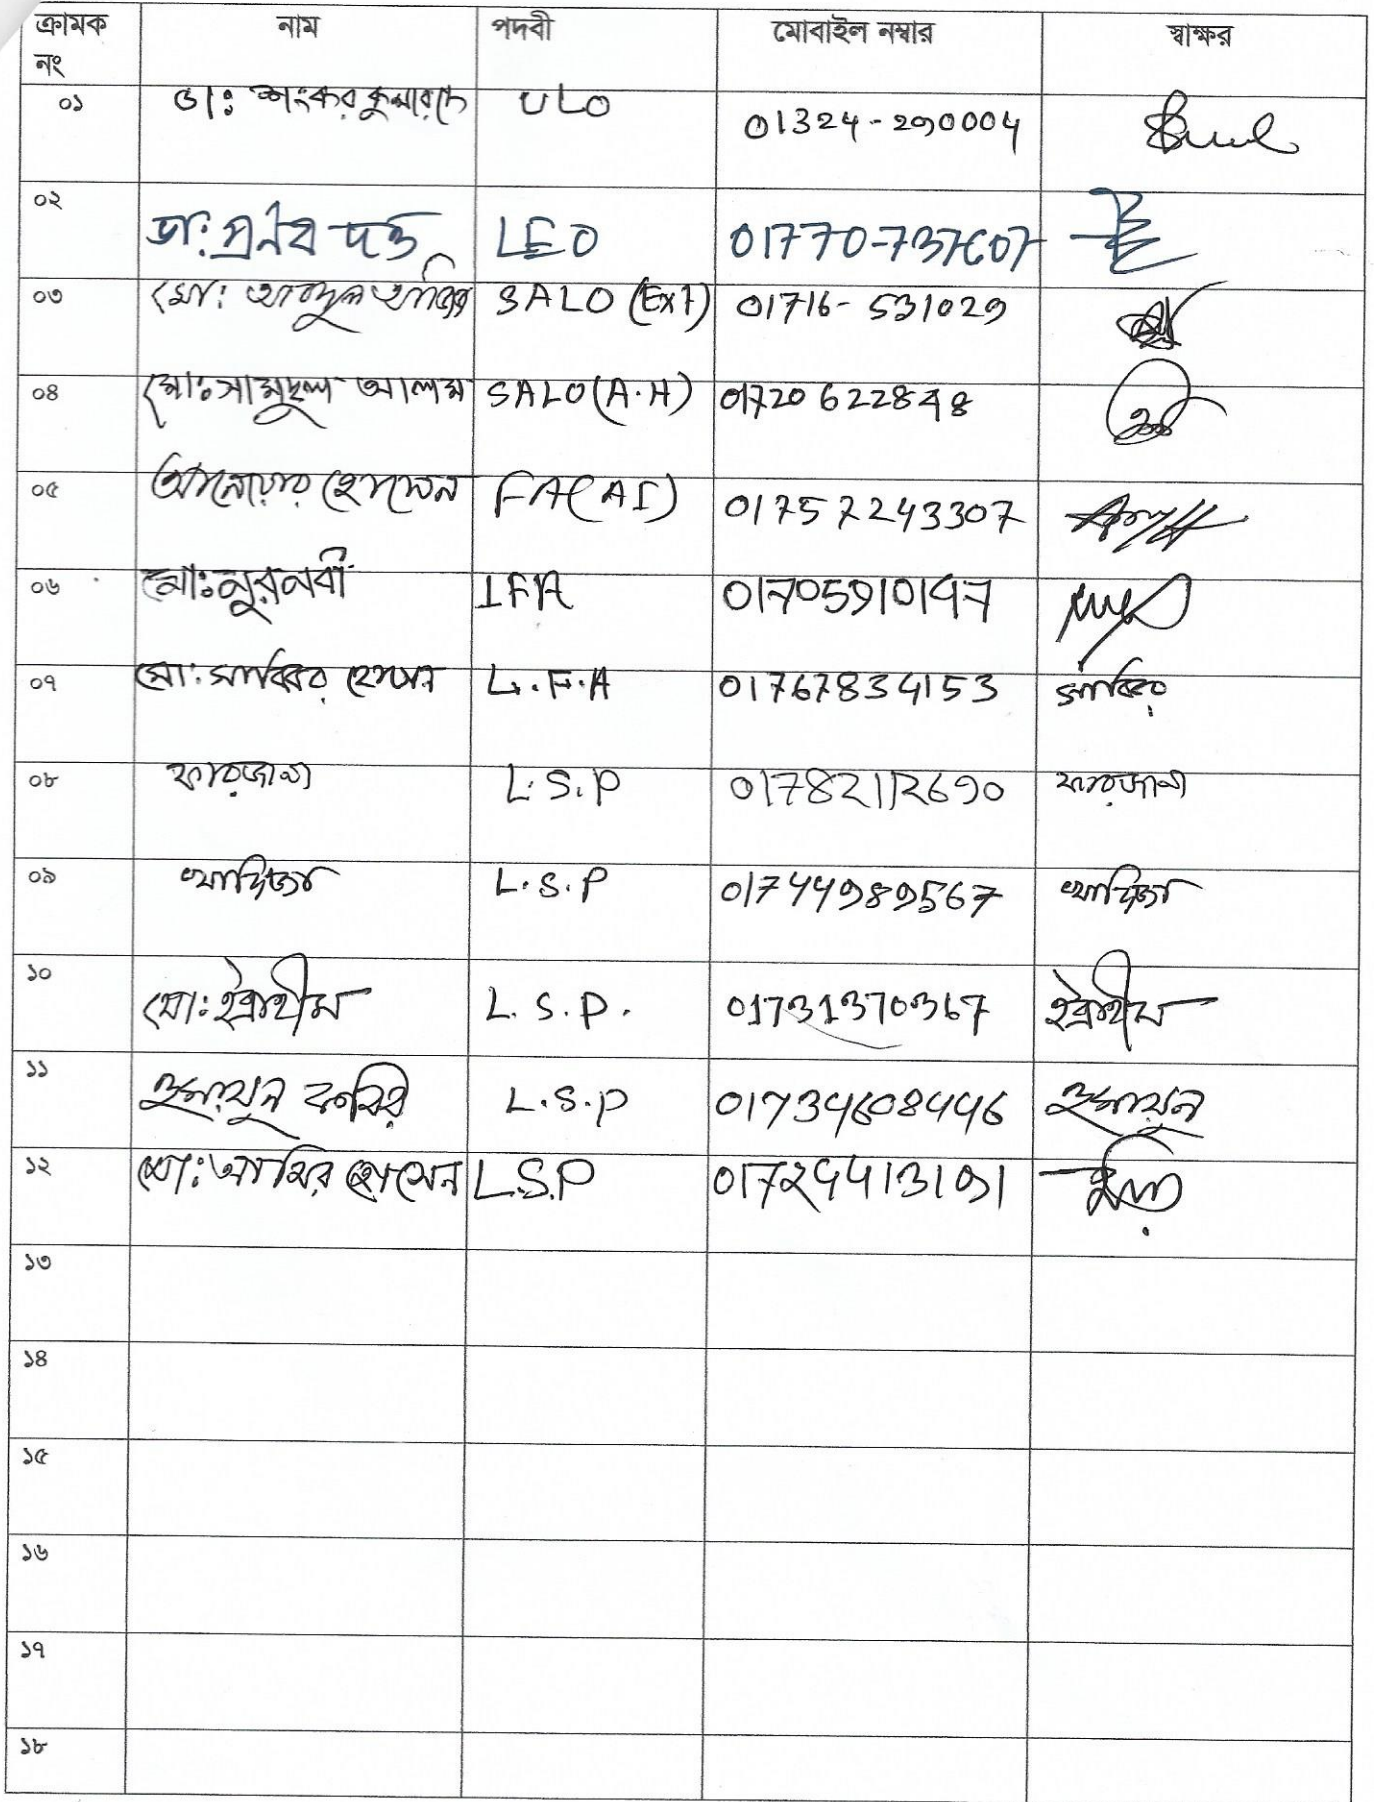 ক্রামক নাম পদবী মোবাইল নম্বার স্বাক্ষর
নং
০১ ডাঃ শংকর কুমার দে ULO 01324-290004
০২ ডা: প্রনব দত্ত LEO 01770-737607
০৩ মো: আব্দুল SALO (Ext) 01716-531029
০৪ মোঃ সামছুল আলম SALO (A.H) 01720622848
০৫ আনোয়ার হোসেন FA(AI) 01757243307
০৬ মোঃ নুরনবী 01705910147
০৭ মো: সাব্বির হোসেন L.F.A 01767834153 সাব্বির
০৮ ফারজানা L.S.P 01782112690 ফারজানা
০৯ খাদিজা L.S.P 01744989567 খাদিজা
১০ মো: ইব্রাহীম L.S.P. 01731370367 ইব্রাহীম
১১ হুমায়ুন কবির L.S.P 01734608446 হুমায়ুন
১২ মো: আমির হোসেন L.S.P 01724413191
১৩
১৪
১৫
১৬
১৭
১৮